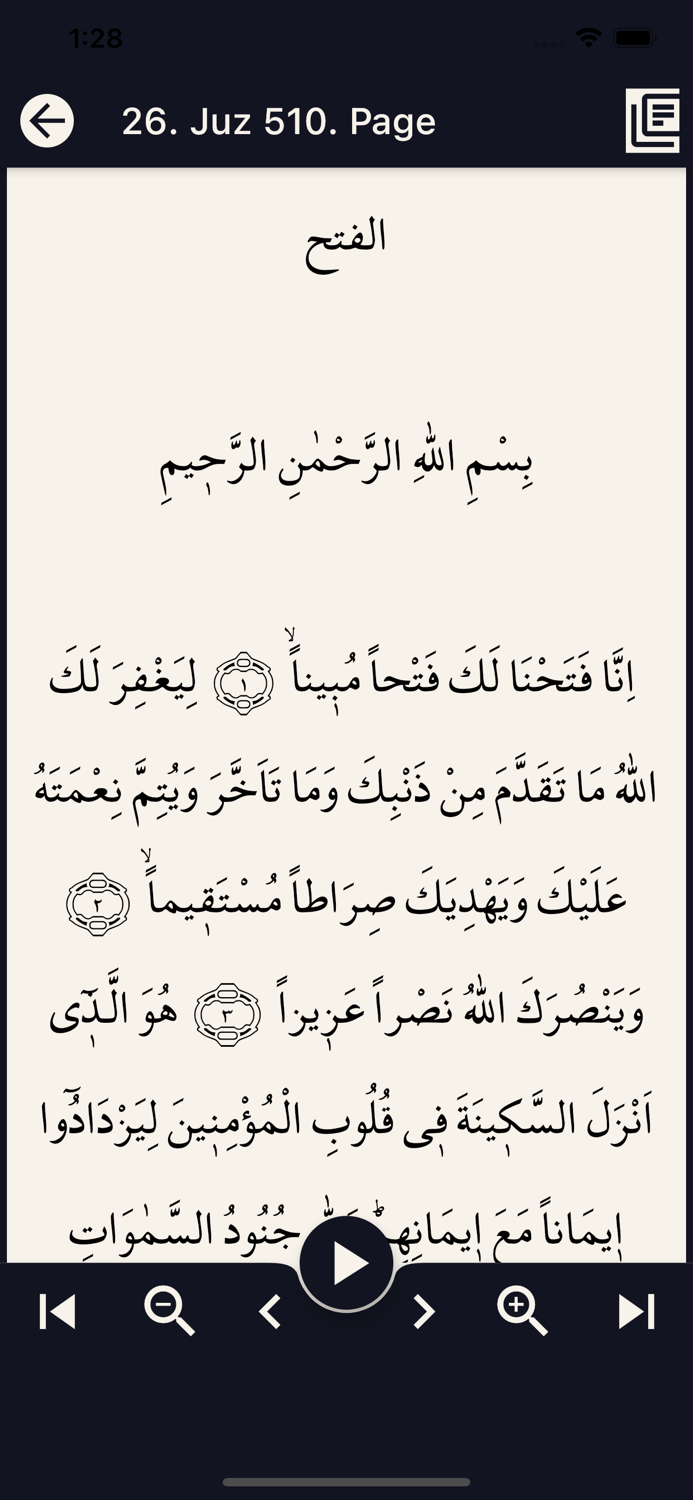 1:28
26. Juz 510. Page
الفتح
بِسْمِ اللّٰهِ الرَّحْمٰنِ الرَّحٖيمِ
اِنَّا فَتَحْنَا لَكَ فَتْحاً مُبٖيناًۙ ١ لِيَغْفِرَ لَكَ
اللّٰهُ مَا تَقَدَّمَ مِنْ ذَنْبِكَ وَمَا تَاَخَّرَ وَيُتِمَّ نِعْمَتَهُ
عَلَيْكَ وَيَهْدِيَكَ صِرَاطاً مُسْتَقٖيماًۙ ٢
وَيَنْصُرَكَ اللّٰهُ نَصْراً عَزٖيزاً ٣ هُوَ الَّـذٖٓى
اَنْزَلَ السَّكٖينَةَ فٖى قُلُوبِ الْمُؤْمِنٖينَ لِيَزْدَادُٓوا
اٖيمَاناً مَعَ اٖيمَانِهِمْؕ جُنُودُ السَّمٰوَاتِ